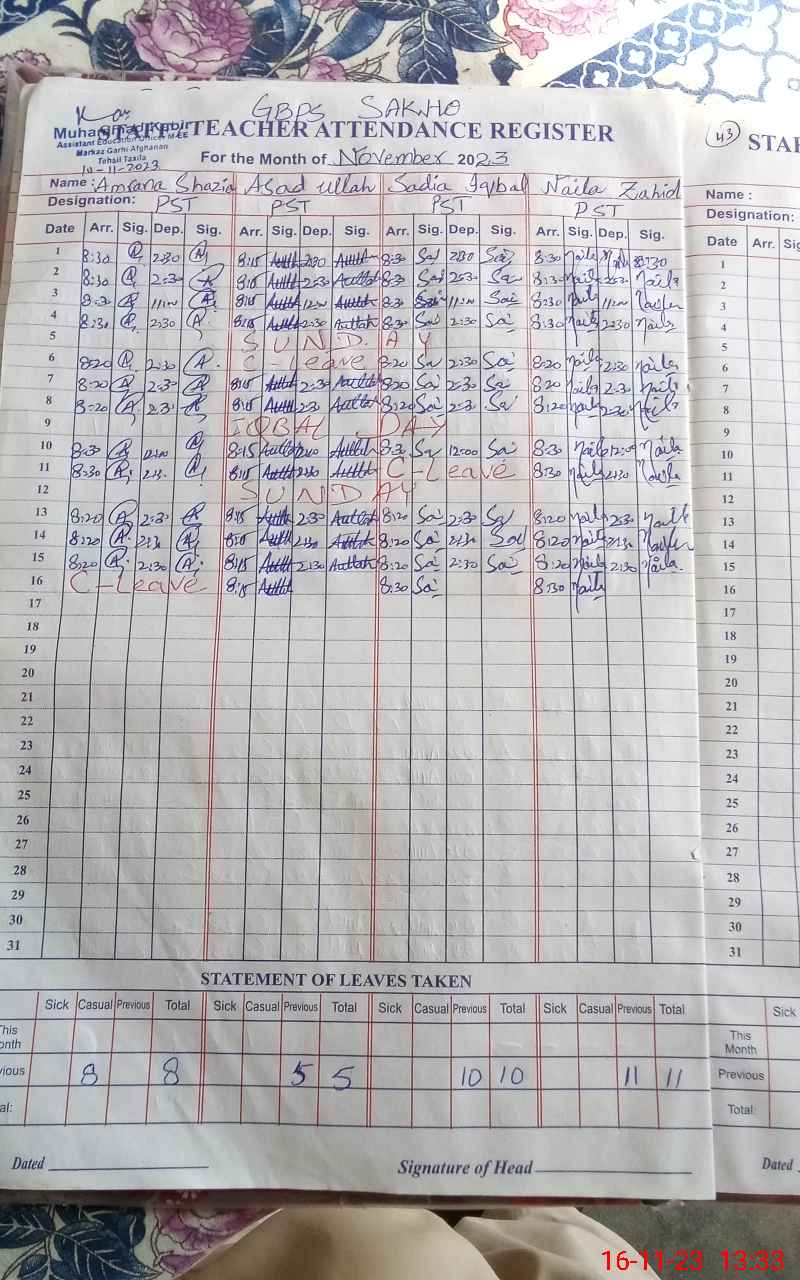 GBPS SAKHO
STAFF/TEACHER ATTENDANCE REGISTER
Muhammad Kabir
Assistant Education Officer M-EE
Markaz Garhi Afghanan
Tehsil Taxila
10-11-2023
For the Month of November 2023
Name: Amrana Shazia Asad ullah Sadia Iqbal Naila Zahid
Designation: PST PST PST PST
Date Arr. Sig. Dep. Sig. Arr. Sig. Dep. Sig. Arr. Sig. Dep. Sig. Arr. Sig. Dep. Sig.
1 8:30 2:30 8:15 2:30 8:30 Sai 2:30 Sai 8:30 Naila
2 8:30 2:30 8:15 2:30 8:30 Sai 2:30 Sai 8:30 Naila 2:30 Naila
3 8:30 11:00 8:15 12:00 8:30 Sai 11:00 Sai 8:30 Naila 11:00 Naila
4 8:30 2:30 8:15 2:30 8:30 Sai 2:30 Sai 8:30 Naila 2:30 Naila
5 SUNDAY
6 8:20 2:30 C Leave 8:20 Sai 2:30 Sai 8:20 Naila 2:30 Naila
7 8:20 2:30 8:15 2:30 8:20 Sai 2:30 Sai 8:20 Naila 2:30 Naila
8 8:20 2:30 8:15 2:30 8:20 Sai 2:30 Sai 8:20 Naila 2:30 Naila
9 IQBAL DAY
10 8:30 12:00 8:15 8:30 Sai 12:00 Sai 8:30 Naila 12:00 Naila
11 8:30 2:30 8:15 2:30 C-Leave 8:30 Naila 2:30 Naila
12 SUNDAY
13 8:20 2:30 8:15 2:30 8:20 Sai 2:30 Sai 8:20 Naila 2:30 Naila
14 8:20 2:30 2:30 8:20 Sai 2:30 Sai 8:20 Naila 2:30 Naila
15 8:20 2:30 8:15 2:30 8:20 Sai 2:30 Sai 8:20 Naila 2:30 Naila
16 C-Leave 8:15 8:30 Sai 8:30 Naila
17
18
19
20
21
22
23
24
25
26
27
28
29
30
31
STATEMENT OF LEAVES TAKEN
Sick Casual Previous Total Sick Casual Previous Total Sick Casual Previous Total Sick Casual Previous Total
This
onth
vious 8 8 5 5 10 10 11 11
al:
Dated
Signature of Head
43
STAF
Name :
Designation:
Date Arr. Sig
1
2
3
4
5
6
7
8
9
10
11
12
13
14
15
16
17
18
19
20
21
22
23
24
25
26
27
28
29
30
31
Sick
This
Month
Previous
Total:
Dated
16-11-23 13:33